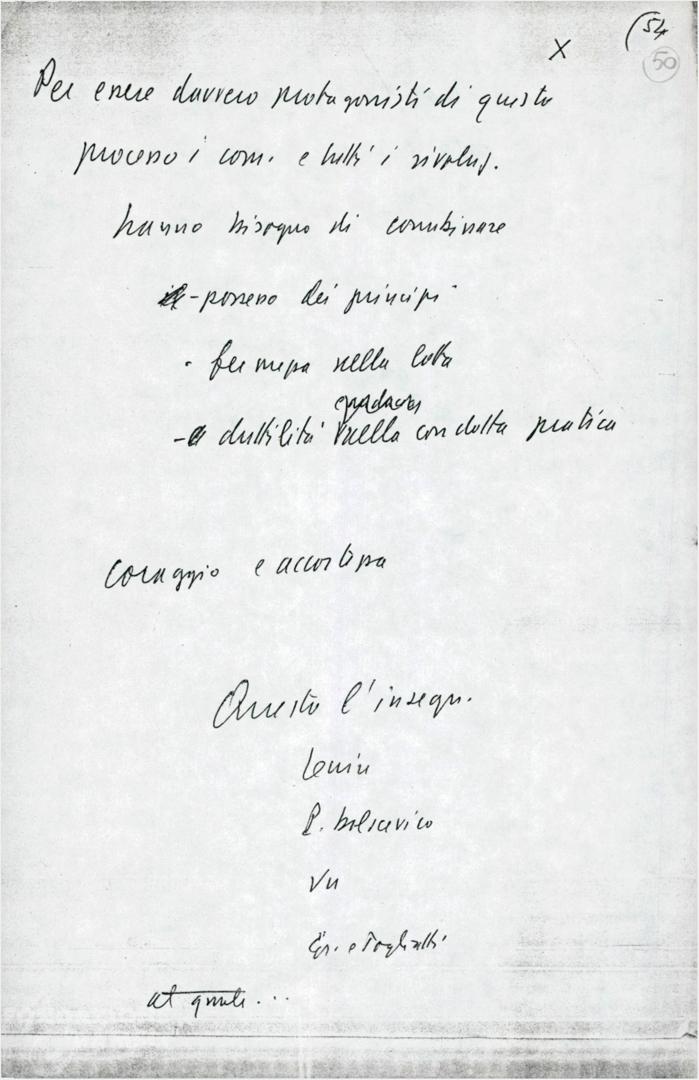 (54
X
50
Per essere davvero protagonisti di questo
processo i com. e tutti i rivoluz.
hanno bisogno di combinare
- possesso dei principi
- fermezza nella lotta
- duttilità nella condotta pratica
coraggio e accortezza
Questo l'insegn.
Lenin
P. bolscevico
VN
Gr. e Togliatti
al quale...